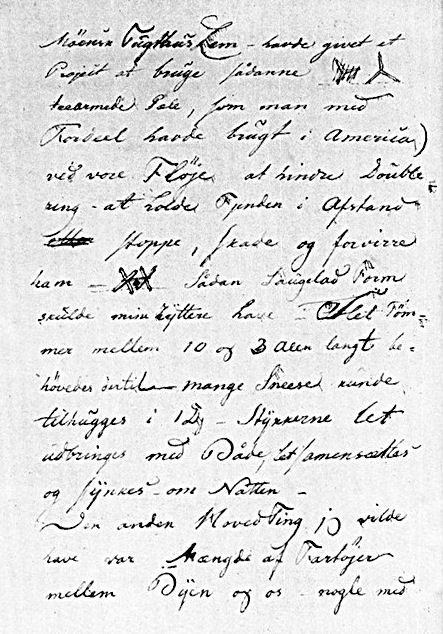 Møenen Tugthus Lem – havde givet et
Project at bruge sådanne
trearmede Pæle, som man med
Fordeel havde brugt i America)
ved vore Fløje at hindre Double
ring – at holde Fjenden i Afstand
stoppe, skade og forvirre
ham – Sådan Form
skulde min have – Slet Töm-
mer mellem 10 og 3 Alen langt be-
hövedes dertil – mange Sneese kunde
tilhugges i 1 D – Stÿkkerne let
udbringes med Både, let samensættes
og sÿnkes om Natten –
Den anden Hoved Ting jeg vilde
have var Mængde af Fartöjer
mellem Bÿen og os – nogle med